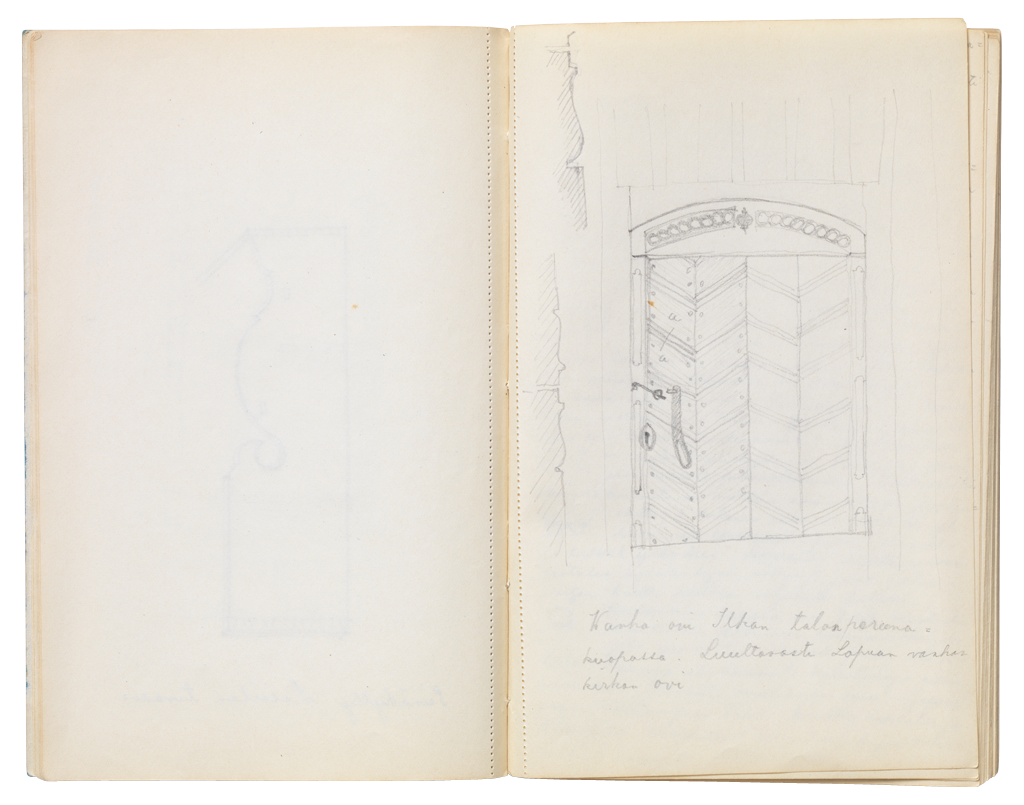 a
a
Wanha ovi Ilkan talon peruna=
kuopassa. Luultavasti Lapuan vanhan
kirkon ovi